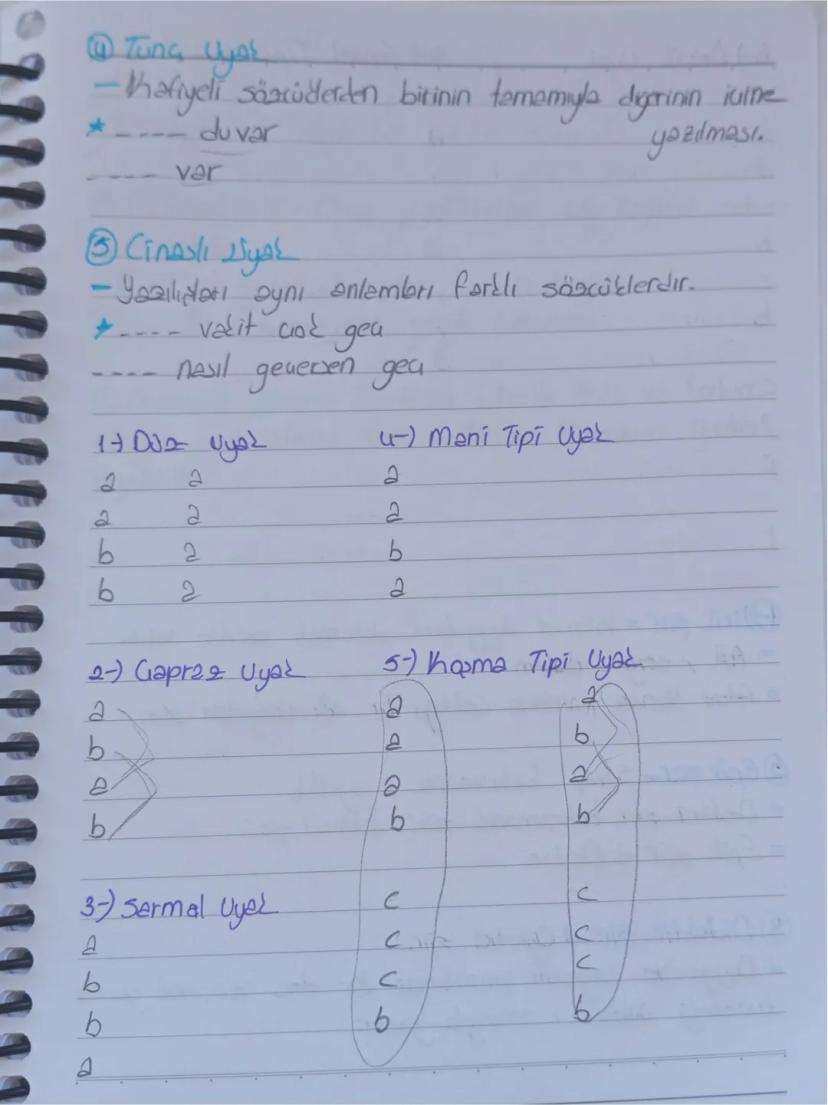 ④ Tunç Uyak
- Kafiyeli sözcüklerden birinin tamamıyla diğerinin içine yazılması.
* ---- duvar
---- var
⑤ Cinaslı Uyak
- Yazılışları aynı anlamları farklı sözcüklerdir.
* ---- vakit çok geç
---- nasıl geçersen geç
1-) Düz Uyak
a a
a a
b a
b a
4-) Mani Tipi Uyak
a
a
b
a
2-) Çapraz Uyak
a
b
a
b
5-) Koşma Tipi Uyak
a a
a b
a a
b b
c c
c c
c c
b b
3-) Sarmal Uyak
a
b
b
a